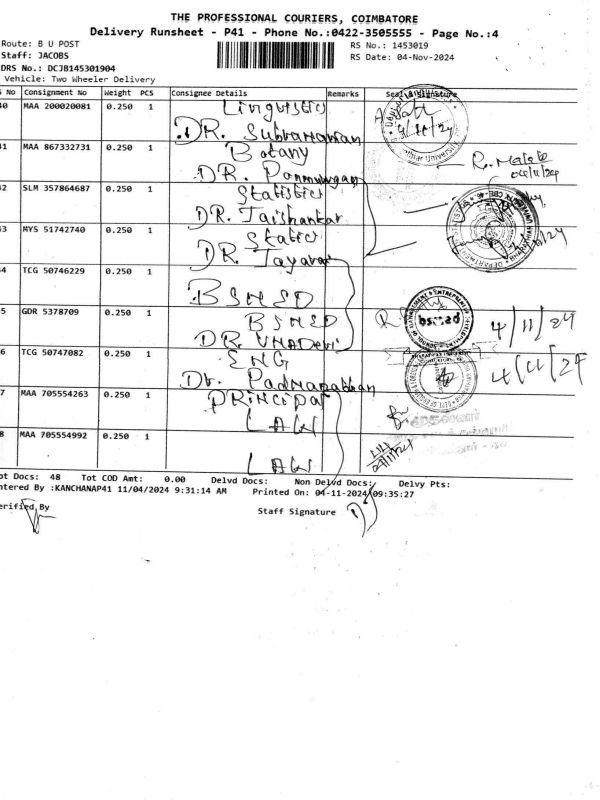 THE PROFESSIONAL COURIERS, COIMBATORE
Delivery Runsheet - P41 - Phone No.:0422-3505555 - Page No.:4
Route: B U POST
RS No.: 1453019
Staff: JACOBS
RS Date: 04-Nov-2024
DRS No.: DCJB145301904
Vehicle: Two Wheeler Delivery
No Consignment No Weight PCS Consignee Details Remarks Seal/Signature
40 MAA 200020081 0.250 1 Linguistics
DR. Subramanian
41 MAA 867332731 0.250 1 Botany
DR. Ponmurugan
04/11/24
42 SLM 357864687 0.250 1 Statistics
DR. Jaishankar
43 MYS 51742740 0.250 1
DR.
44 TCG 50746229 0.250 1 BSMED
45 GDR 5378709 0.250 1 BSMED
DR. UMADevi
bsmed
4/11/24
46 TCG 50747082 0.250 1 ENG
Dr. Padmanabhan
4/11/24
47 MAA 705554263 0.250 1 PRincipal
LAW
48 MAA 705554992 0.250 1
LAW
Tot Docs: 48 Tot COD Amt: 0.00 Delvd Docs: Non Delvd Docs: Delvy Pts:
Entered By :KANCHANAP41 11/04/2024 9:31:14 AM Printed On: 04-11-2024 09:35:27
Verified By
Staff Signature